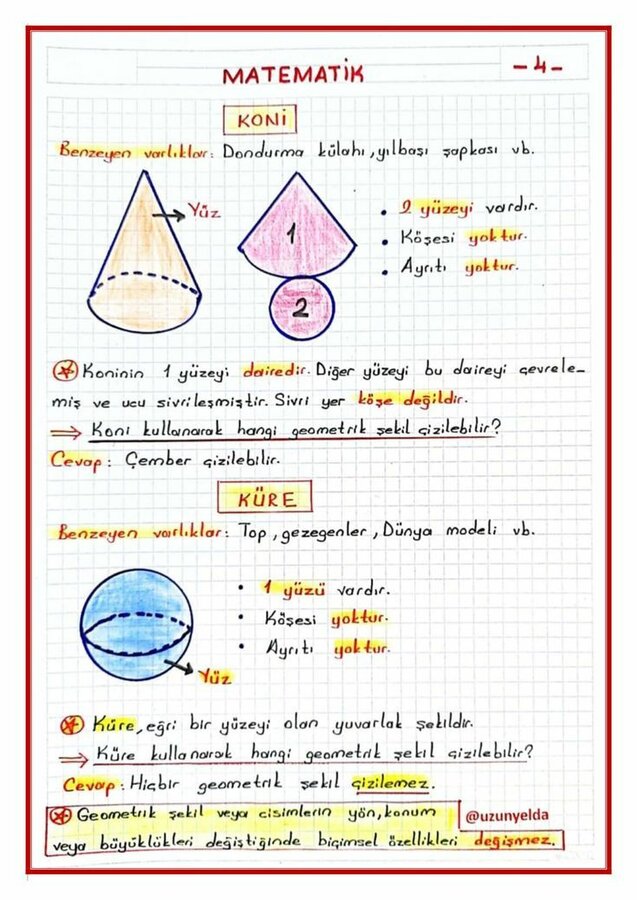 MATEMATİK
- 4 -
KONİ
Benzeyen varlıklar: Dondurma külahı, yılbaşı şapkası vb.
Yüz
1
2
• 2 yüzeyi vardır.
• Köşesi yoktur.
• Ayrıtı yoktur.
Koninin 1 yüzeyi dairedir. Diğer yüzeyi bu daireyi çevrele-
miş ve ucu sivrileşmiştir. Sivri yer köşe değildir.
⇒ Koni kullanarak hangi geometrik şekil çizilebilir?
Cevap: Çember çizilebilir.
KÜRE
Benzeyen varlıklar: Top, gezegenler, Dünya modeli vb.
• 1 yüzü vardır.
• Köşesi yoktur.
• Ayrıtı yoktur.
Yüz
Küre, eğri bir yüzeyi olan yuvarlak şekildir.
⇒ Küre kullanarak hangi geometrik şekil çizilebilir?
Cevap: Hiçbir geometrik şekil çizilemez.
Geometrik şekil veya cisimlerin yön, konum
@uzunyelda
veya büyüklükleri değiştiğinde biçimsel özellikleri değişmez.